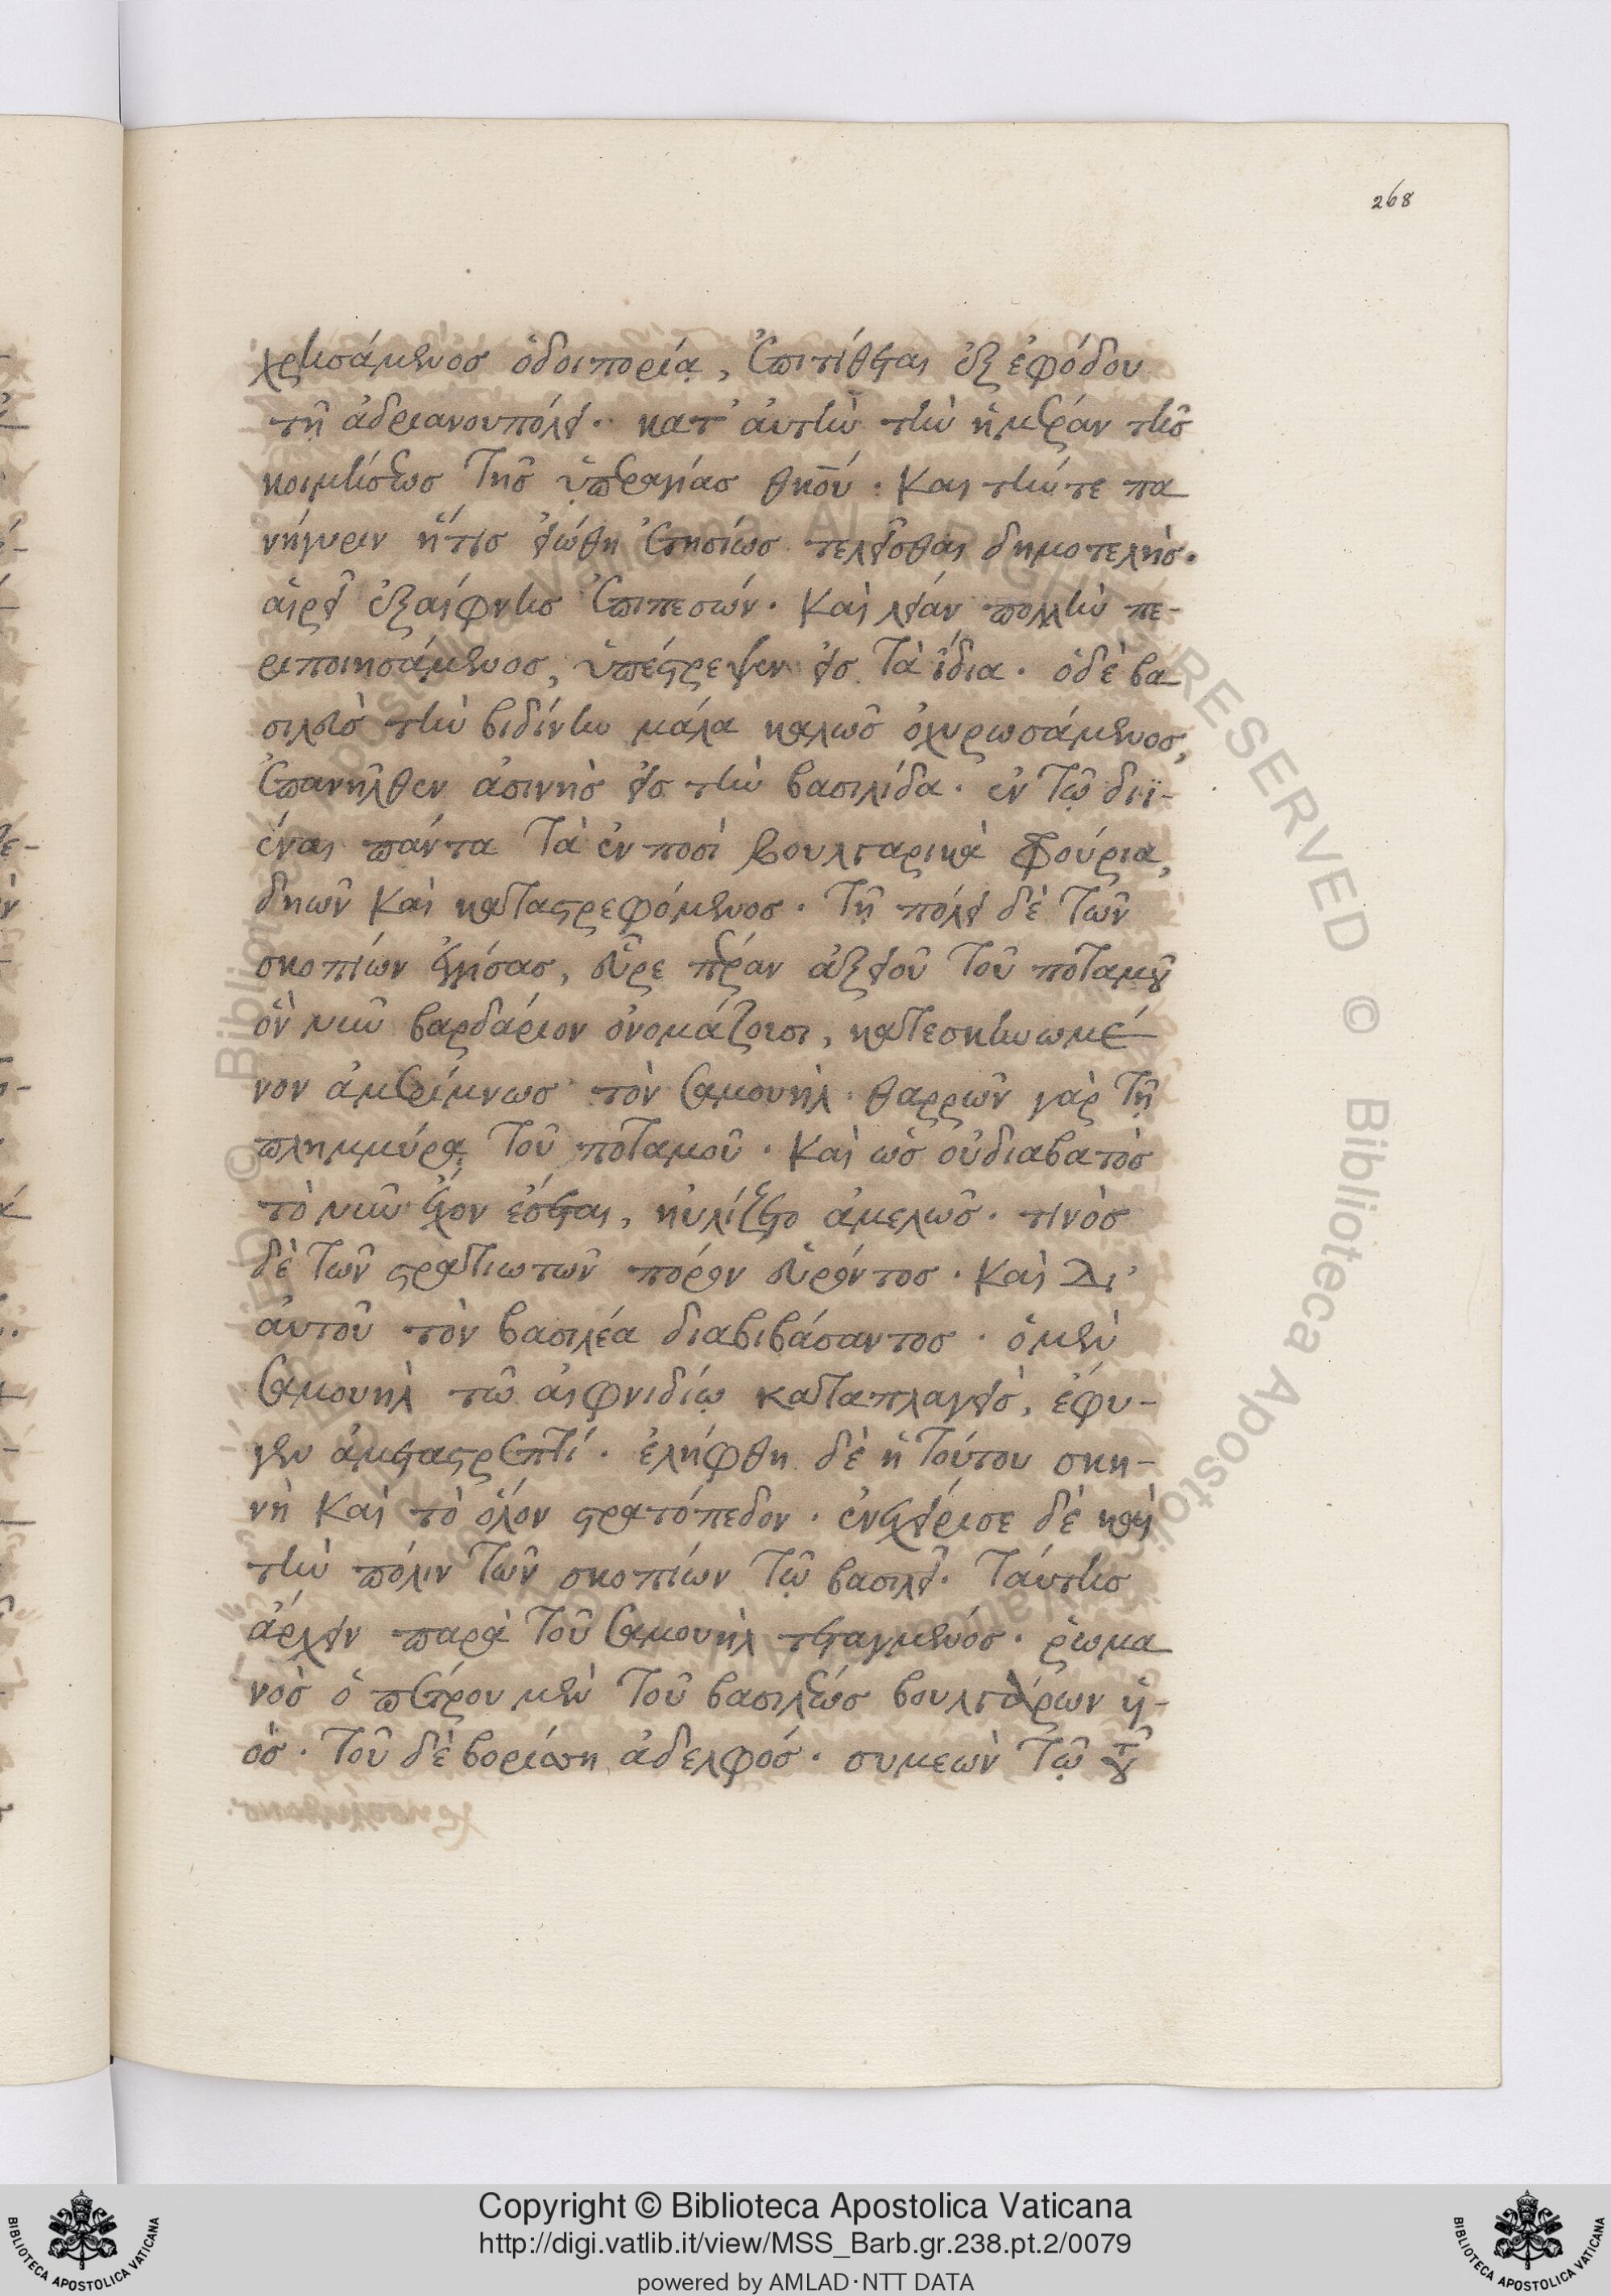 268
χρησάμενος ὁδοιπορία, ἐπιτίθεται ἐξ ἐφόδου
τῆ ἀδριανουπόλει. κατ' ἀυτὴν τὴν ἡμέραν τῆς
κοιμήσεως τῆς ὑπεραγίας θκ̅ου. καὶ τήν τε πα
νήγυριν ἥτις εἰώθη ἐτησίως τελεῖσθαι δημοτελὴς.
αἱρεῖ ἐξαίφνης ἐπιπεσών. καὶ λείαν πολλὴν πε-
ριποιησάμενος, ὑπέστρεψεν εἰς τὰ ἴδια. ὁ δὲ βα
σιλεὺς τὴν βιδίνην μάλα καλῶς ὀχυρωσάμενος,
ἐπανῆλθεν ἀσινὴς εἰς τὴν βασιλίδα. ἐν τῷ διϊ-
έναι πάντα τὰ ἐν ποσὶ βουλγαρικὰ φρούρια,
δηῶν καὶ καταστρεφόμενος. τῆ πόλει δὲ τῶν
σκοπίων ἐγγίσας, εὗρε πέραν ἀξειοῦ τοῦ ποταμοῦ
ὃν νῦν βαρδάριον ὀνομάζουσι, κατεσκηνωμέ
νον ἀμερίμνως τὸν σαμουὴλ. θαρρῶν γὰρ τῆ
πλημμύρα τοῦ ποταμοῦ. καὶ ὡς οὐ διαβατὸς
τὸ νῦν ἔχον ἔσται, ηὐλίζετο ἀμελῶς. τινὸς
δὲ τῶν στρατιωτῶν πόρον εὑρόντος. καὶ δι'
ἀυτοῦ τὸν βασιλέα διαβιβάσαντος. ὁ μὲν
σαμουὴλ τῶ αἰφνιδίῳ καταπλαγεὶς, ἔφυ-
γεν ἀμεταστρεπτί. ἐλήφθη δὲ ἡ τούτου σκη-
νὴ καὶ τὸ ὅλον στρατόπεδον. ἐνεχείρισε δὲ καὶ
τὴν πόλιν τῶν σκοπίων τῷ βασιλεῖ. ταύτης
ἄρχειν παρὰ τοῦ σαμουὴλ τεταγμενός. ῥωμα
νὸς ὁ πέτρου μὲν τοῦ βασιλέως βουλγάρων ὑι-
ὸς. τοῦ δὲ βορίση ἀδελφός. συμεὼν τῷ τοῦ
Copyright © Biblioteca Apostolica Vaticana
http://digi.vatlib.it/view/MSS_Barb.gr.238.pt.2/0079
powered by AMLAD·NTT DATA
BIBLIOTECA APOSTOLICA VATICANA
BIBLIOTECA APOSTOLICA VATICANA